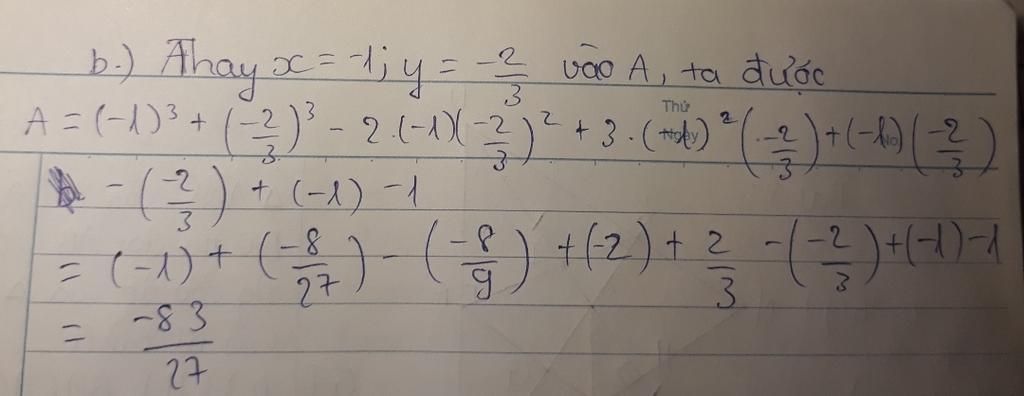 b.) Thay x = -1; y = \frac{-2}{3} vào A, ta được
A = (-1)³ + (\frac{-2}{3})³ - 2.(-1)(\frac{-2}{3})² + 3.(-1)²(\frac{-2}{3}) + (-1)(\frac{-2}{3})
- (\frac{-2}{3}) + (-1) - 1
= (-1) + (\frac{-8}{27}) - (\frac{-8}{9}) + (-2) + \frac{2}{3} - (\frac{-2}{3}) + (-1) - 1
= \frac{-83}{27}
Thứ
Ngày
No